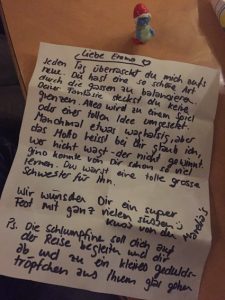 Liebe Emma ♡
Jeden Tag überrascht du mich auf's
neue. Du hast eine so schöne Art
durch die gassen zu balancieren.
Deiner Fantasie steckst du keine
grenzen. Alles wird zu einem Spiel
oder eines tollen Idee umgesetzt.
Manchmal etwas waghalsig, aber
das Motto heisst bei Dir glaub ich
wer nicht wagt der nicht gewinnt.
gino konnte von Dir schon so viel
lernen. Du warst eine tolle grosse
Schwester für ihn.
Wir wünschen Dir ein super
Fest mit ganz vielen süssen
von der
P.S. Die Schlumpfine soll dich auf
der Reise begleiten und dir
ab und zu ein kleines gedulds-
tröpfchen aus Ihrem glas geben